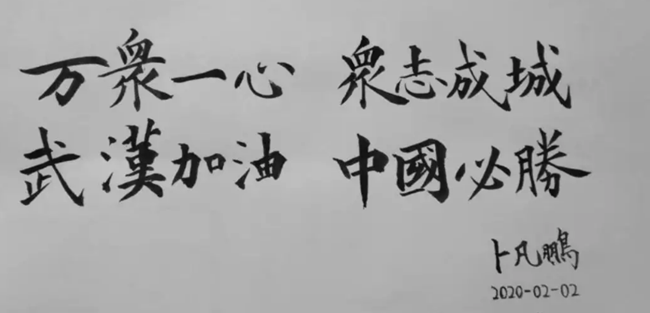 万衆一心 衆志成城
武漢加油 中國必勝
卜凡鵬
2020-02-02